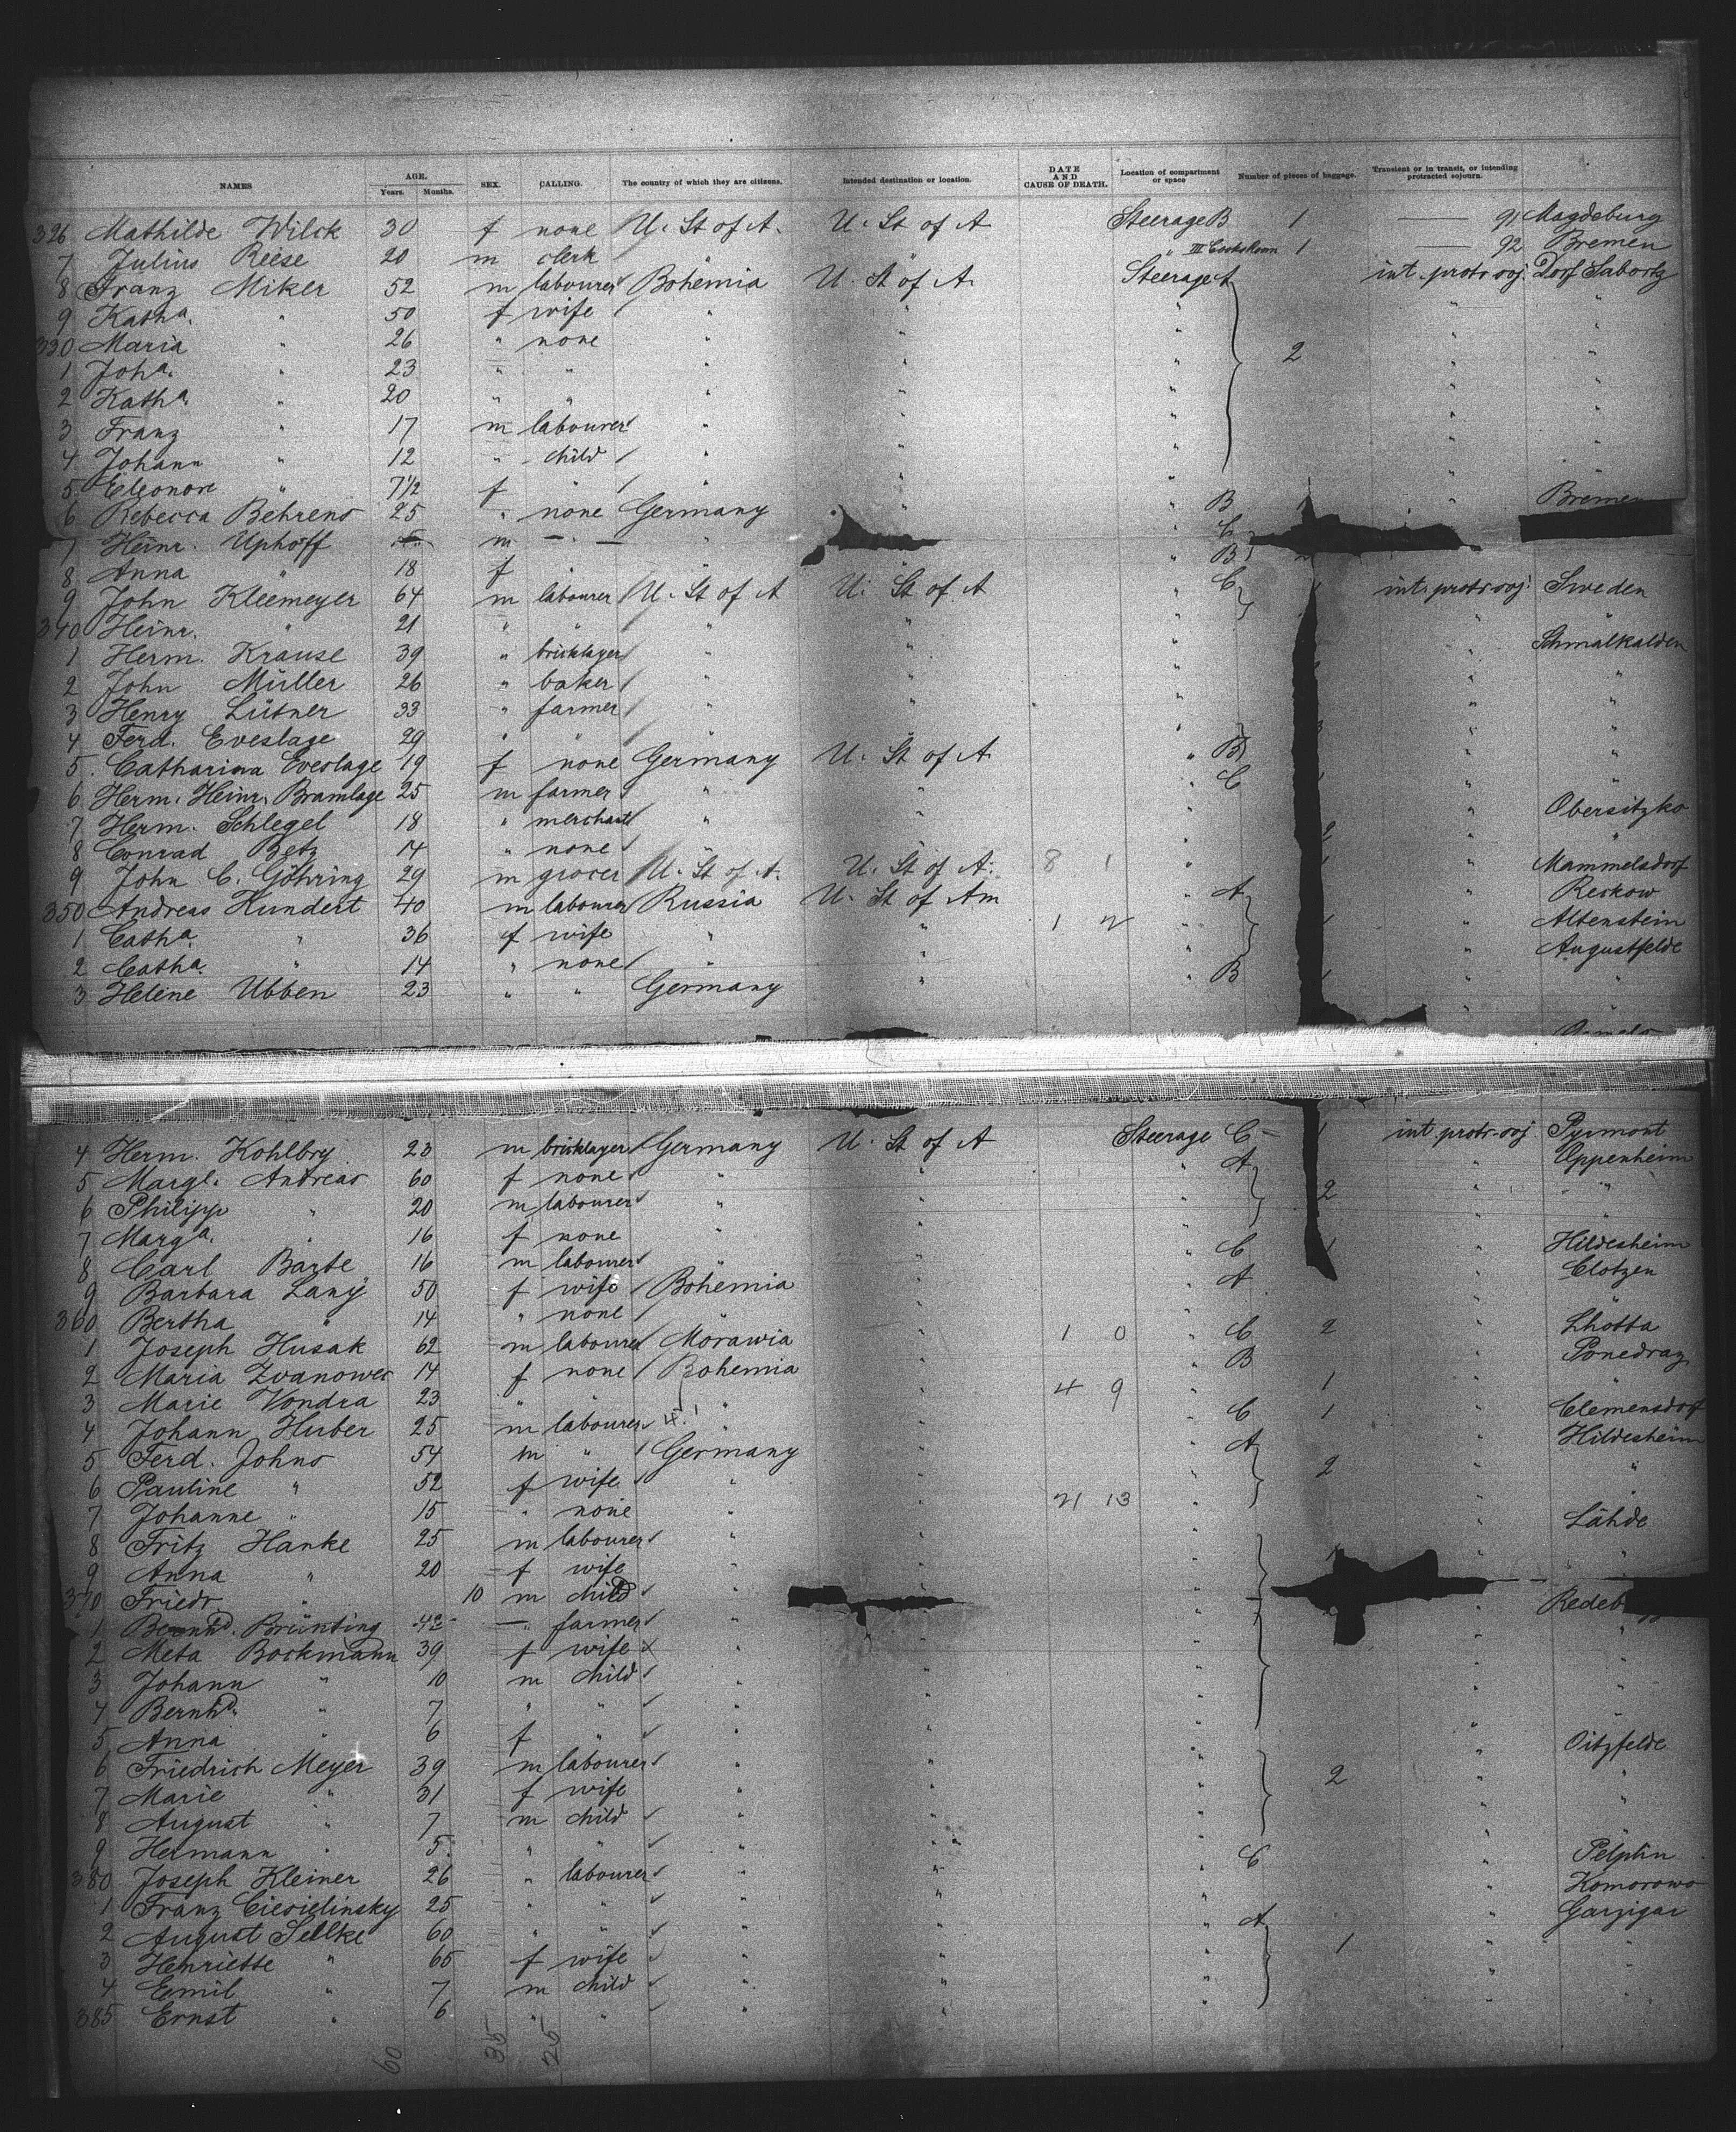 NAMES AGE. Years. Months. SEX. CALLING. The country of which they are citizens. Intended destination or location. DATE AND CAUSE OF DEATH. Location of compartment or space Number of pieces of baggage. Transient or in transit, or intending protracted sojourn.
326 Mathilde Wilck 30 f none U. St of A. U. St of A Steerage B 1 — 91 Magdeburg
7 Julius Riese 20 m clerk " III Cooks Room 1 — 92 Bremen
8 Franz Miker 52 m labourer Bohemia U. St of A. Steerage A int. protr. soj. Dorf Labortz
9 Katha. " 50 f wife " " " " "
330 Maria " 26 " none " " " 2 "
1 Joha. " 23 " " " " " " "
2 Katha. " 20 " " " " " "
3 Franz " 17 m labourer " " " " "
4 Johann " 12 " child " " " "
5 Eleonore " 7 1/2 f " " " " "
6 Rebecca Behrens 25 " none Germany " " B " Bremen
7 Heinr. Uphoff m — — " " C
8 Anna " 18 f " " " B
9 John Kleemeyer 64 m labourer U. St of A U. St of A " C int. protr. soj. Sweden
340 Heinr. " 21 " " " " " " "
1 Herm. Krause 39 " bricklayer " " " " Schmalkalden
2 John Müller 26 " baker " " " " "
3 Henry Lütner 33 " farmer " " " " "
4 Ferd. Eveslage 29 " " " " " "
5 Catharina Eveslage 19 f none Germany U. St of A " B " "
6 Herm. Heinr. Bramlage 25 m farmer " " " C " Obersitzko
7 Herm. Schlegel 18 " merchant " " " 2 " "
8 Conrad Betz 14 " none " " " 1 " Mammelsdorf
9 John C. Göhring 29 m grocer U. St of A. U. St of A. 8 1 " " Reckow
350 Andreas Kundert 40 m labourer Russia U. St of Am " A 1 " Altenstein
1 Catha. " 36 f wife " " 1 2 " " Augustfelde
2 Catha. " 14 " none " " " " "
3 Heline Ubben 23 " " Germany " B 1 "
4 Herm. Kohlbry 23 m bricklayer Germany U. St of A Steerage C 1 int. protr. soj Pyrmont
5 Margt. Andreas 60 f none " " " A " Oppenheim
6 Philipp " 20 m labourer " " " 2 " "
7 Marga. " 16 f none " " " "
8 Carl Barte 16 m labourer " " " C 1 " Hildesheim
9 Barbara Lany 50 f wife Bohemia " " A " Clotzen
360 Bertha " 14 " none " " " " "
1 Joseph Husak 62 m labourer Morawia " 1 0 " C 2 " Lhotta
2 Maria Zvanowec 14 f none Bohemia " " B " Ponedraz
3 Marie Vondra 23 " " " " 4 9 " 1 " "
4 Johann Huber 25 m labourer 4.1 " " " C 1 " Clemensdorf
5 Ferd. Johns 54 m " Germany " " A " Hildesheim
6 Pauline " 52 f wife " " " 2 " "
7 Johanne " 15 " none " " 21 13 " " "
8 Fritz Hanke 25 m labourer " " " " Lähde
9 Anna " 20 f wife " " " " "
370 Friedr. " 10 m child " " "
1 Bernhd. Brünting 42 — farmer " " "
2 Meta Bockmann 39 f wife " " " " "
3 Johann " 10 m child " " " " "
4 Bernhd. " 7 " " " " " " "
5 Anna " 6 f " " " " " "
6 Friedrich Meyer 39 m labourer " " " " Oitzfelde
7 Marie " 31 f wife " " " 2 " "
8 August " 7 m child " " " " "
9 Hermann " 5. " " " " " " "
380 Joseph Kleiner 26 " labourer " " " C " Pelplin
1 Franz Ciesielinsky 25 " " " " " " Komorowo
2 August Sellke 60 " " " " " A " Garzigar
3 Henriette " 65 f wife " " " 1 " "
4 Emil " 7 m child " " " " "
385 Ernst " 6 " " " " " " "
60 35 25